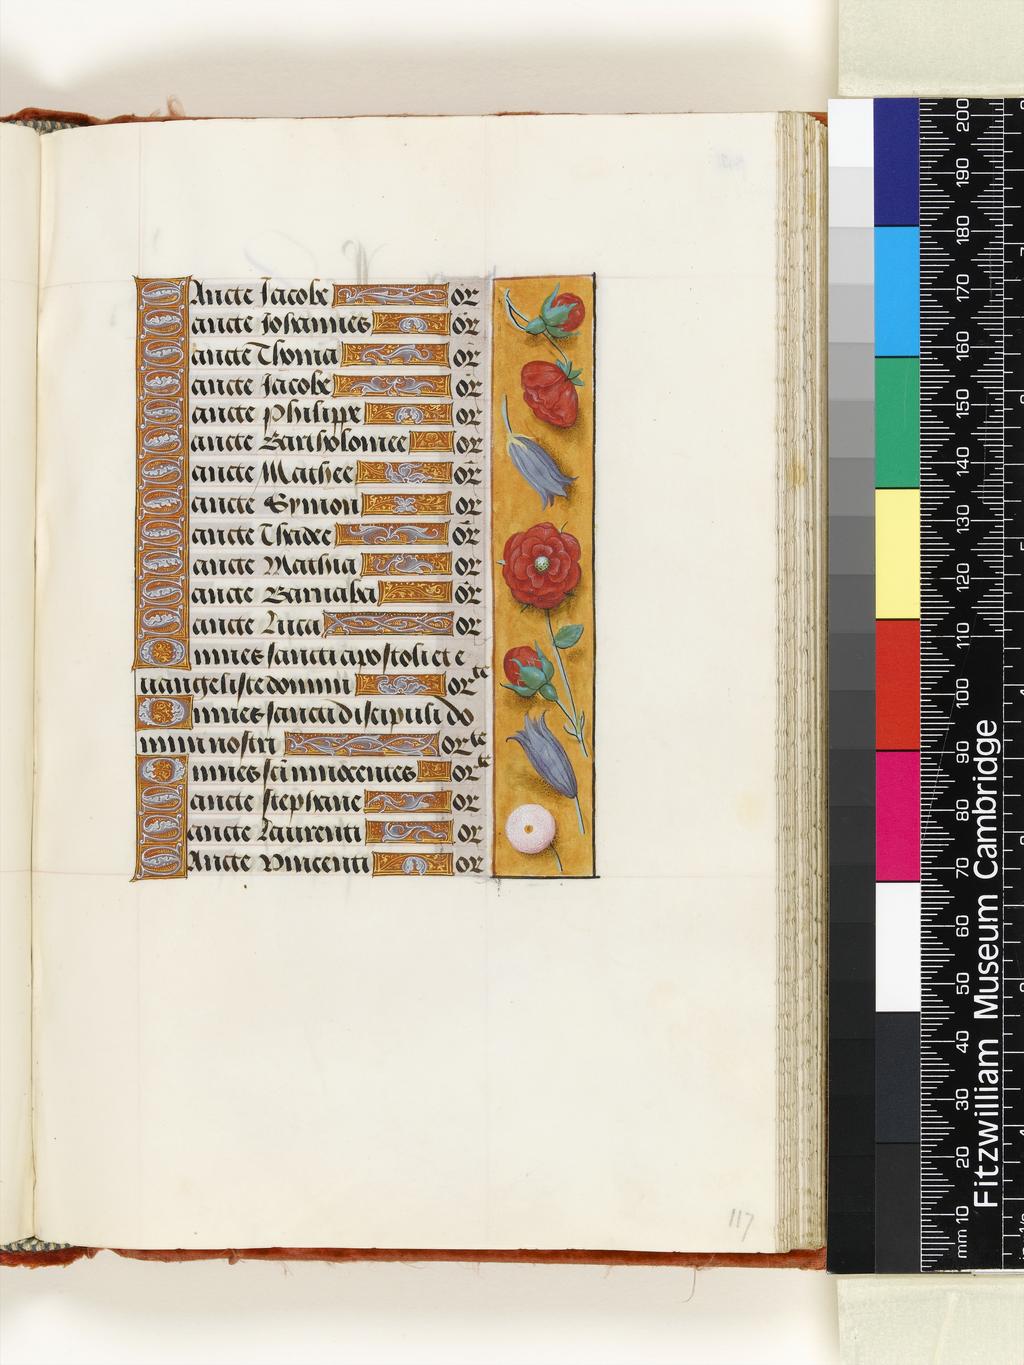 SAncte Iacobe or
Sancte Iohannes or
Sancte Thoma or
Sancte Iacobe or
Sancte Philippe or
Sancte Bartholomee or
Sancte Mathee or
Sancte Symon or
Sancte Thadee or
Sancte Mathia or
Sancte Barnaba or
Sancte Luca or
Omnes sancti apostoli et e
uangeliste domini orte
Omnes sancti discipuli do
mini nostri orte
Omnes sci innocentes orte
Sancte Stephane or
Sancte Laurenti or
SAncte Vincenti or
117
Fitzwilliam Museum Cambridge
mm 10 20 30 40 50 60 70 80 90 100 110 120 130 140 150 160 170 180 190 200